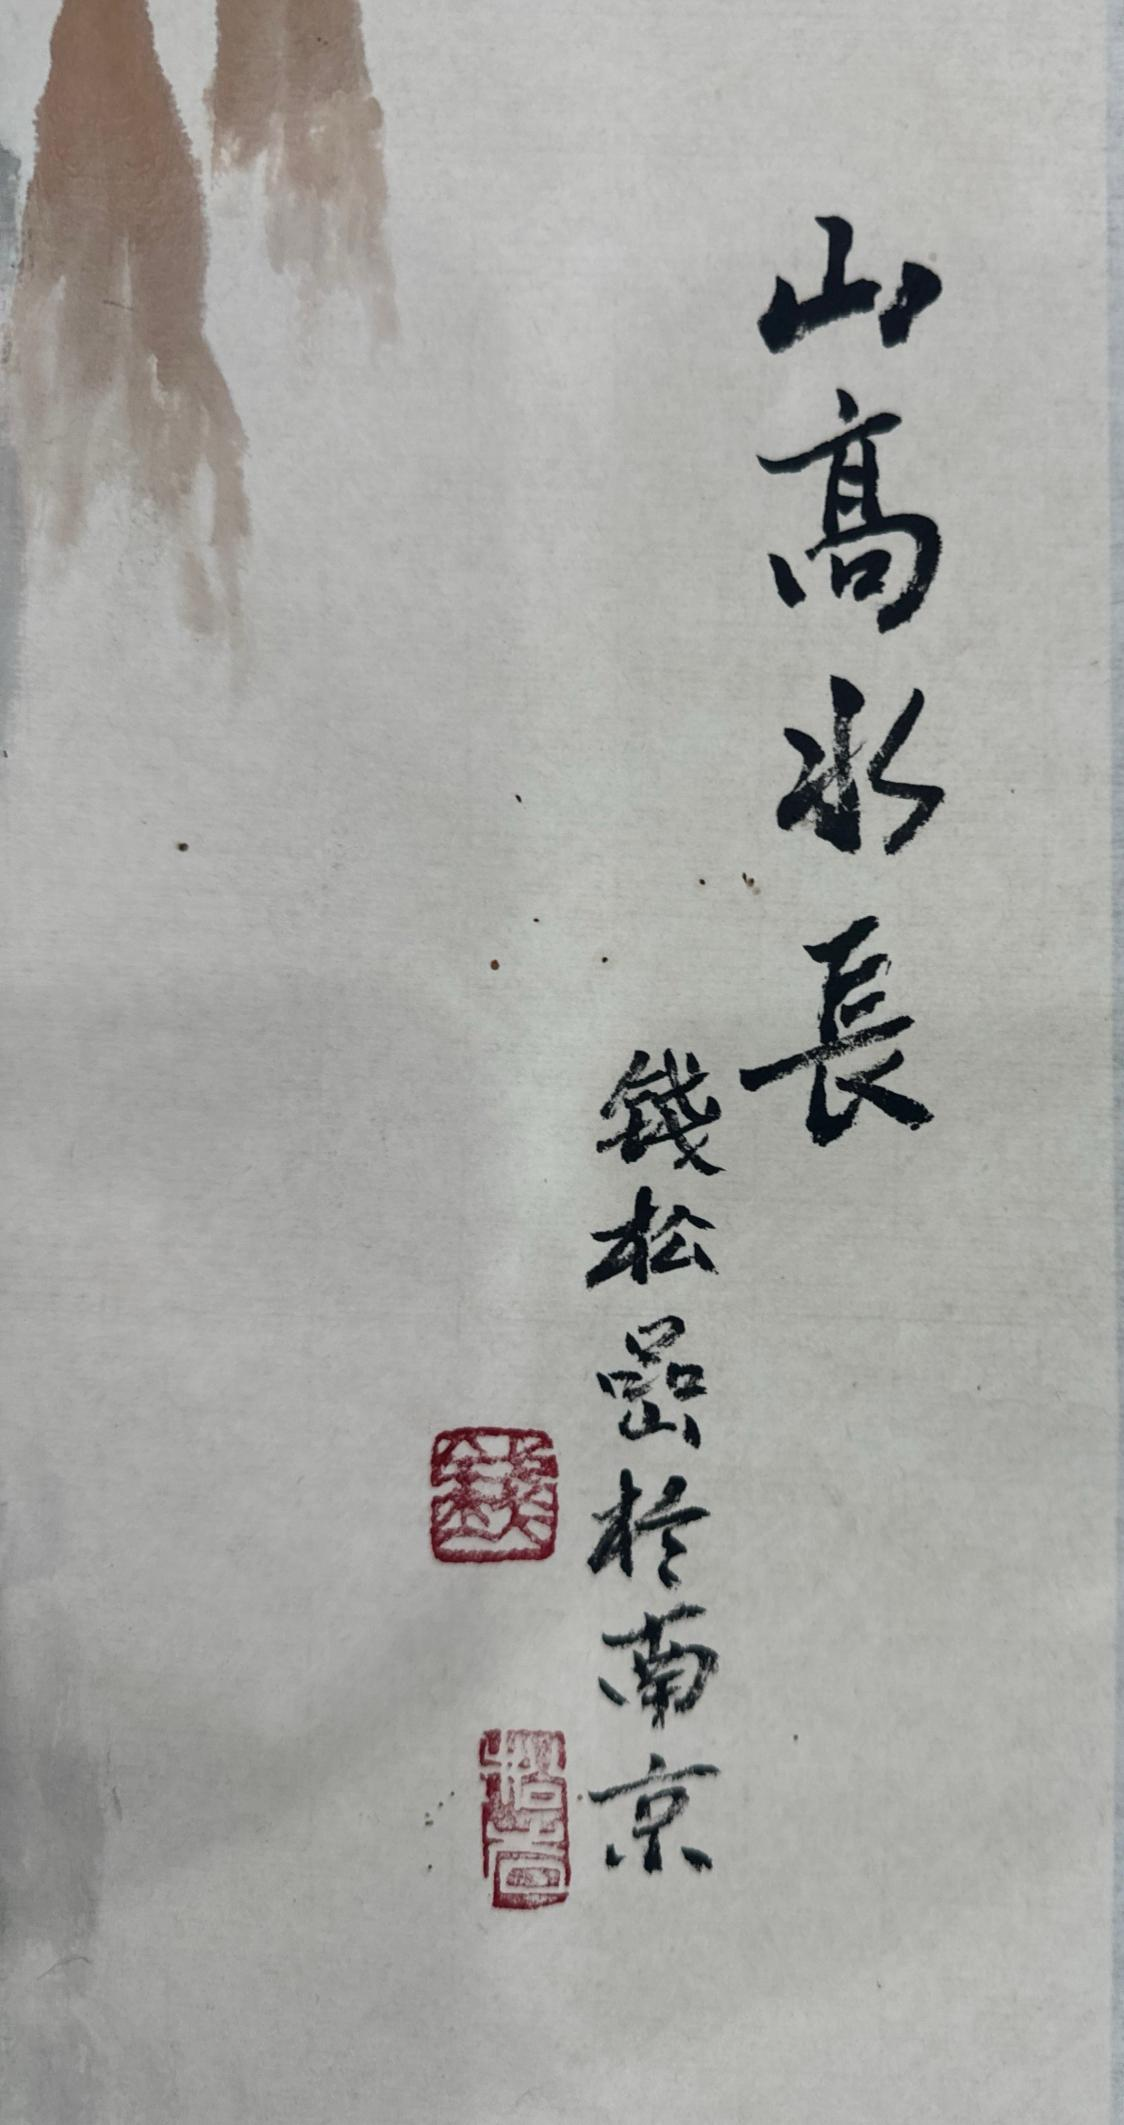 山高水長
錢松嵒於南京
錢
松嵒